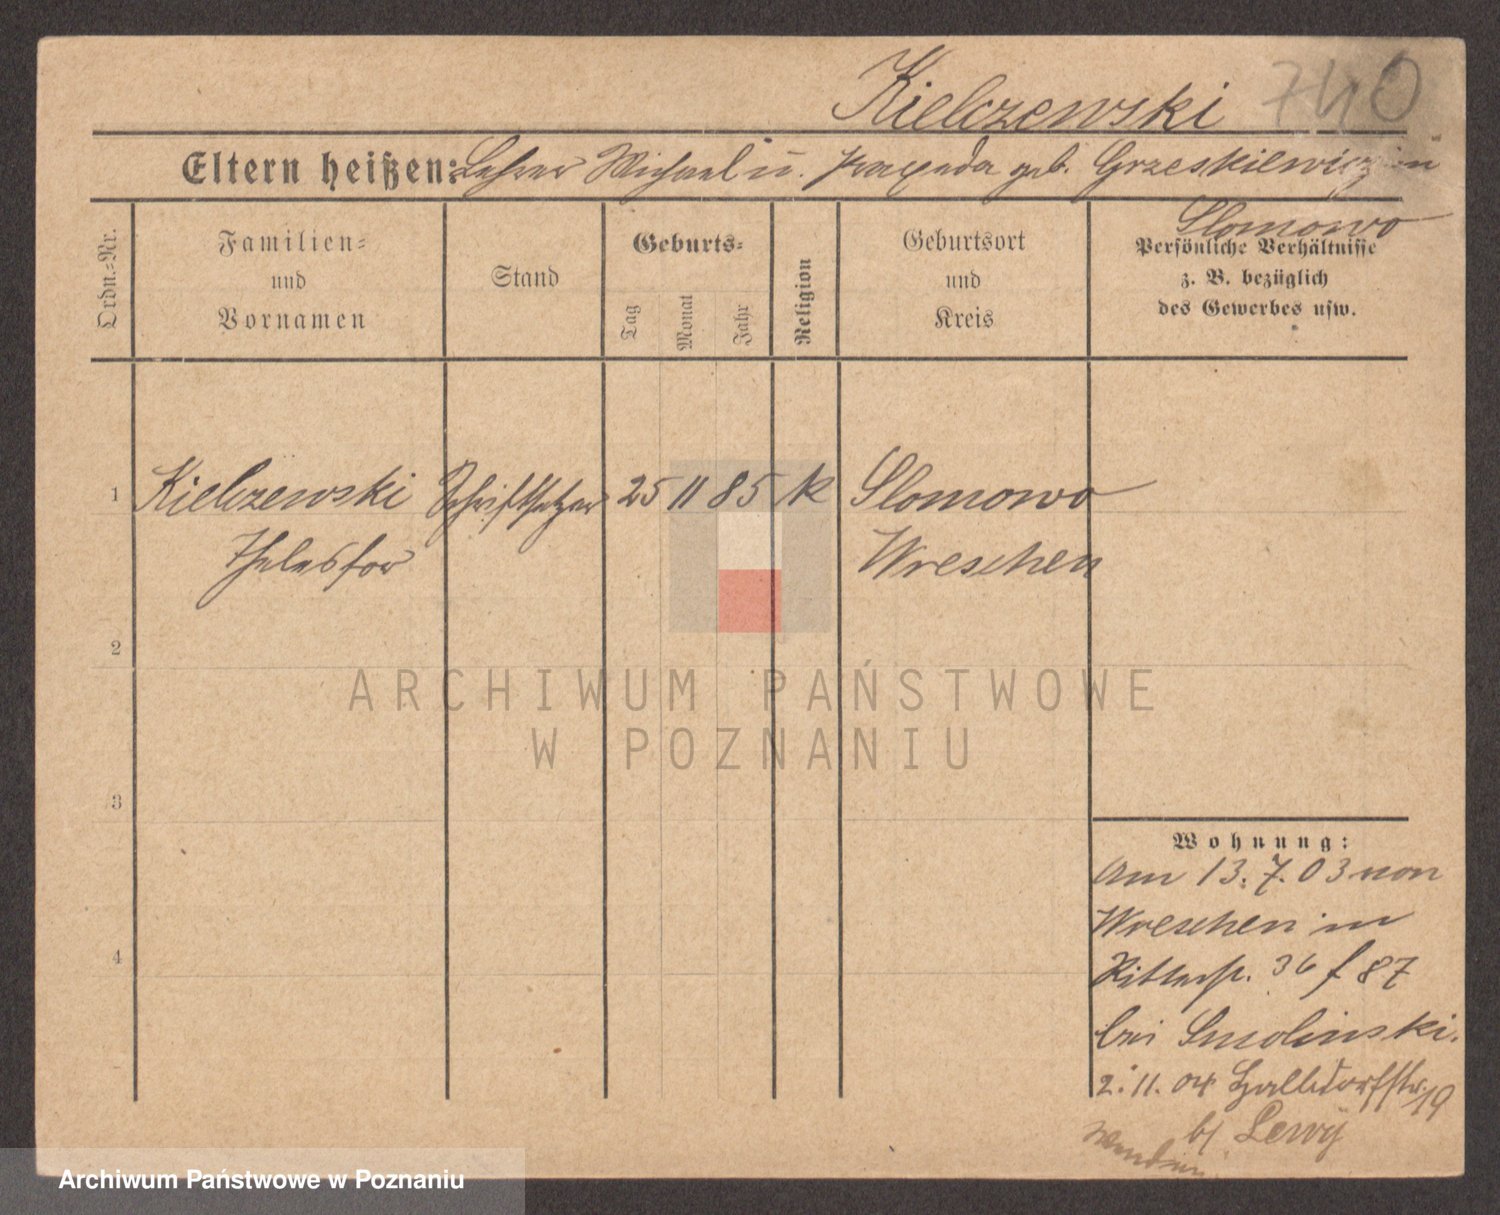 Kielczewski 740
Eltern heißen: Lehrer Michael u. Praxeda geb. Grzeskiewicz in
Slomowo
Ordn.-Nr.
Familien-
und
Vornamen
Stand
Geburts-
Tag
Monat
Jahr
Religion
Geburtsort
und
Kreis
Persönliche Verhältnisse
z. B. bezüglich
des Gewerbes usw.
1 Kielczewski Schriftsetzer 25 11 85 K Slomowo
Thelesfor Wreschen
2
3
4
Wohnung:
Am 13.7.03 von
Wreschen in
Ritterstr. 36 f 87
bei Smolinski.
2.11.04 Halldorfstr. 19
b/ Lewy
wenden
ARCHIWUM PAŃSTWOWE
W POZNANIU
Archiwum Państwowe w Poznaniu